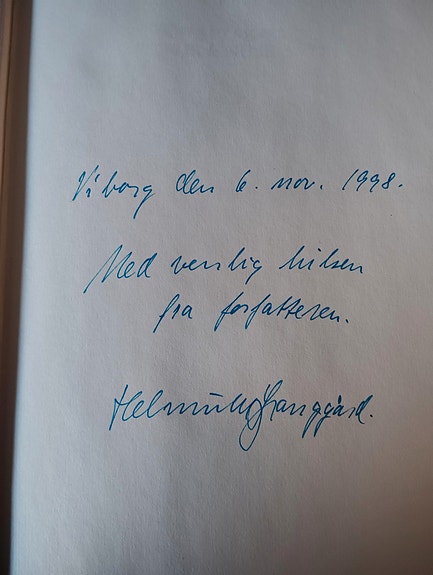 Viborg den 6. nov. 1998.
Med venlig hilsen
fra forfatteren.